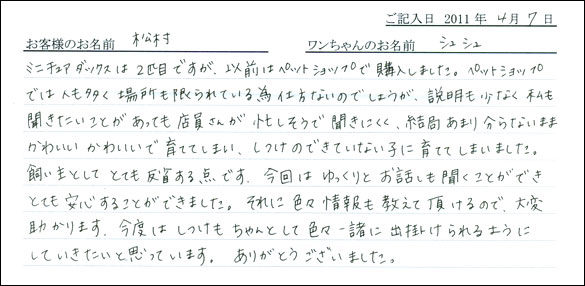 ご記入日 2011年 4月 7日
お客様のお名前 松村 ワンちゃんのお名前 シュシュ
ミニチュアダックスは2匹目ですが、以前はペットショップで購入しました。ペットショップ
では人も多く場所も限られている為仕方ないのでしょうが、説明も少なく私も
聞きたいことがあっても店員さんが忙しそうで聞きにくく、結局あまり分らないまま
かわいいかわいいで育ててしまい、しつけのできていない子に育ててしまいました。
飼い主としてとても反省する点です。今回はゆっくりとお話しも聞くことができ
とても安心することができました。それに色々情報も教えて頂けるので、大変
助かります。今度はしつけもちゃんとして色々一諸に出掛けられるように
していきたいと思っています。ありがとうございました。